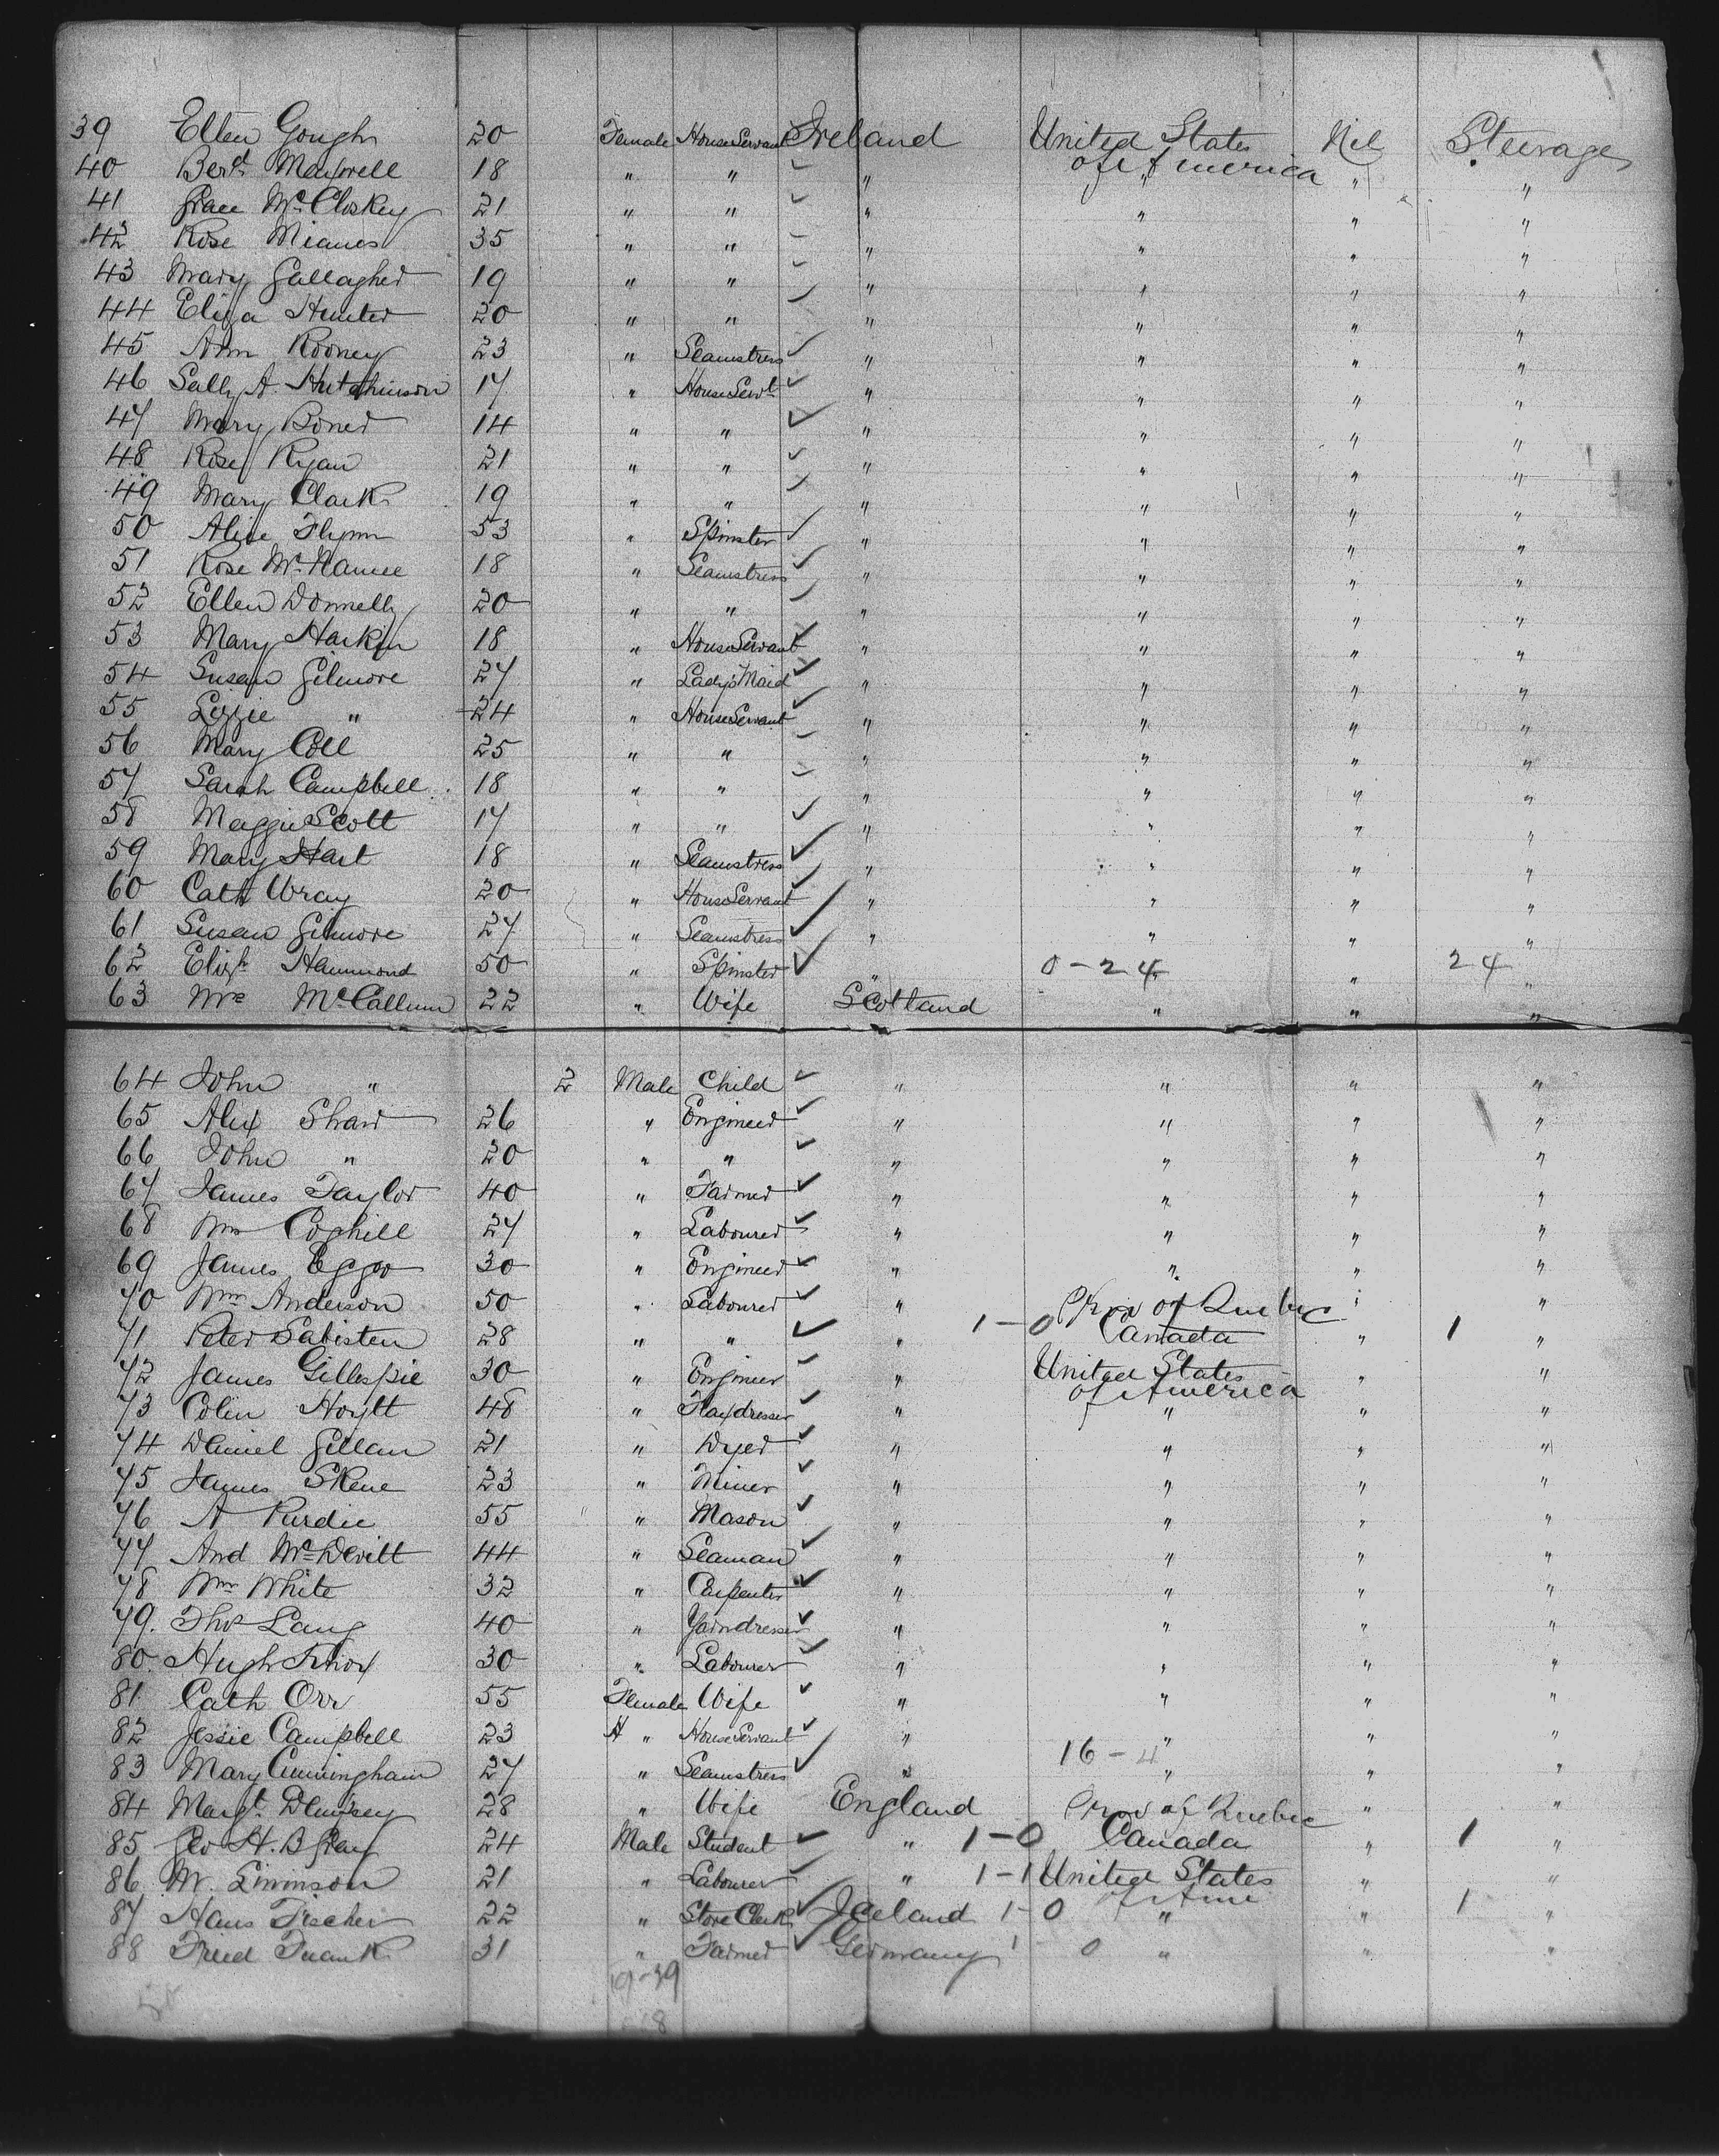 39 Ellen Gough 20 Female House Servant Ireland United States of America Nil Steerage
40 Bert. Maxwell 18 " " " " " "
41 Grace McCloskey 21 " " " " " "
42 Rose Meanes 35 " " " " " "
43 Mary Gallagher 19 " " " " " "
44 Eliza Hunter 20 " " " " " "
45 Ann Rooney 23 " Seamstress " " " "
46 Sally A. Hutchinson 17 " House Servt " " " "
47 Mary Boner 14 " " " " " "
48 Rose Ryan 21 " " " " " "
49 Mary Clark 19 " " " " " "
50 Alice Flynn 53 " Spinster " " " "
51 Rose McNamee 18 " Seamstress " " " "
52 Ellen Donnelly 20 " " " " " "
53 Mary Harkin 18 " House Servant " " " "
54 Susan Gilmore 27 " Lady's Maid " " " "
55 Lizzie " 24 " House Servant " " " "
56 Mary Coll 25 " " " " " "
57 Sarah Campbell 18 " " " " " "
58 Maggie Scott 17 " " " " " "
59 Mary Hart 18 " Seamstress " " " "
60 Cath Wray 20 " House Servant " " " "
61 Susan Gilmore 27 " Seamstress " " " "
62 Elizh Hammond 50 " Spinster " 0-24 " 24 "
63 Mrs McCallum 22 " Wife Scotland " " "
64 John " 2 Male Child " " " "
65 Alex Shaw 26 " Engineer " " " "
66 John " 20 " " " " " "
67 James Taylor 40 " Farmer " " " "
68 Wm Coghill 27 " Labourer " " " "
69 James Eggo 30 " Engineer " " " "
70 Wm Anderson 50 " Labourer " Prov of Quebec " "
71 Peter Sabisten 28 " " " 1-0 Canada " 1 "
72 James Gillespie 30 " Engineer " United States of America " "
73 Colin Hoytt 48 " Flaxdresser " " " "
74 Daniel Gillan 21 " Dyer " " " "
75 James Skene 23 " Miner " " " "
76 A Purdie 55 " Mason " " " "
77 And McDevitt 44 " Seaman " " " "
78 Wm White 32 " Carpenter " " " "
79. Thos Lang 40 " Yarndresser " " " "
80. Hugh Knox 30 " Labourer " " " "
81 Cath Orr 55 Female Wife " " " "
82 Jessie Campbell 23 " House Servant " " " "
83 Mary Cunningham 27 " Seamstress " 16-4 " " "
84 Margt. Dempsey 28 " Wife England Prov of Quebec " "
85 Geo H. B Gray 24 Male Student " 1-0 Canada " 1 "
86 W. Simmson 21 " Labourer " 1-1 United States of Ame " "
87 Hans Fischer 22 " Store Clerk Iceland 1-0 " " 1 "
88 Fried Frank 31 " Farmer Germany 1 0 " " "
19-39